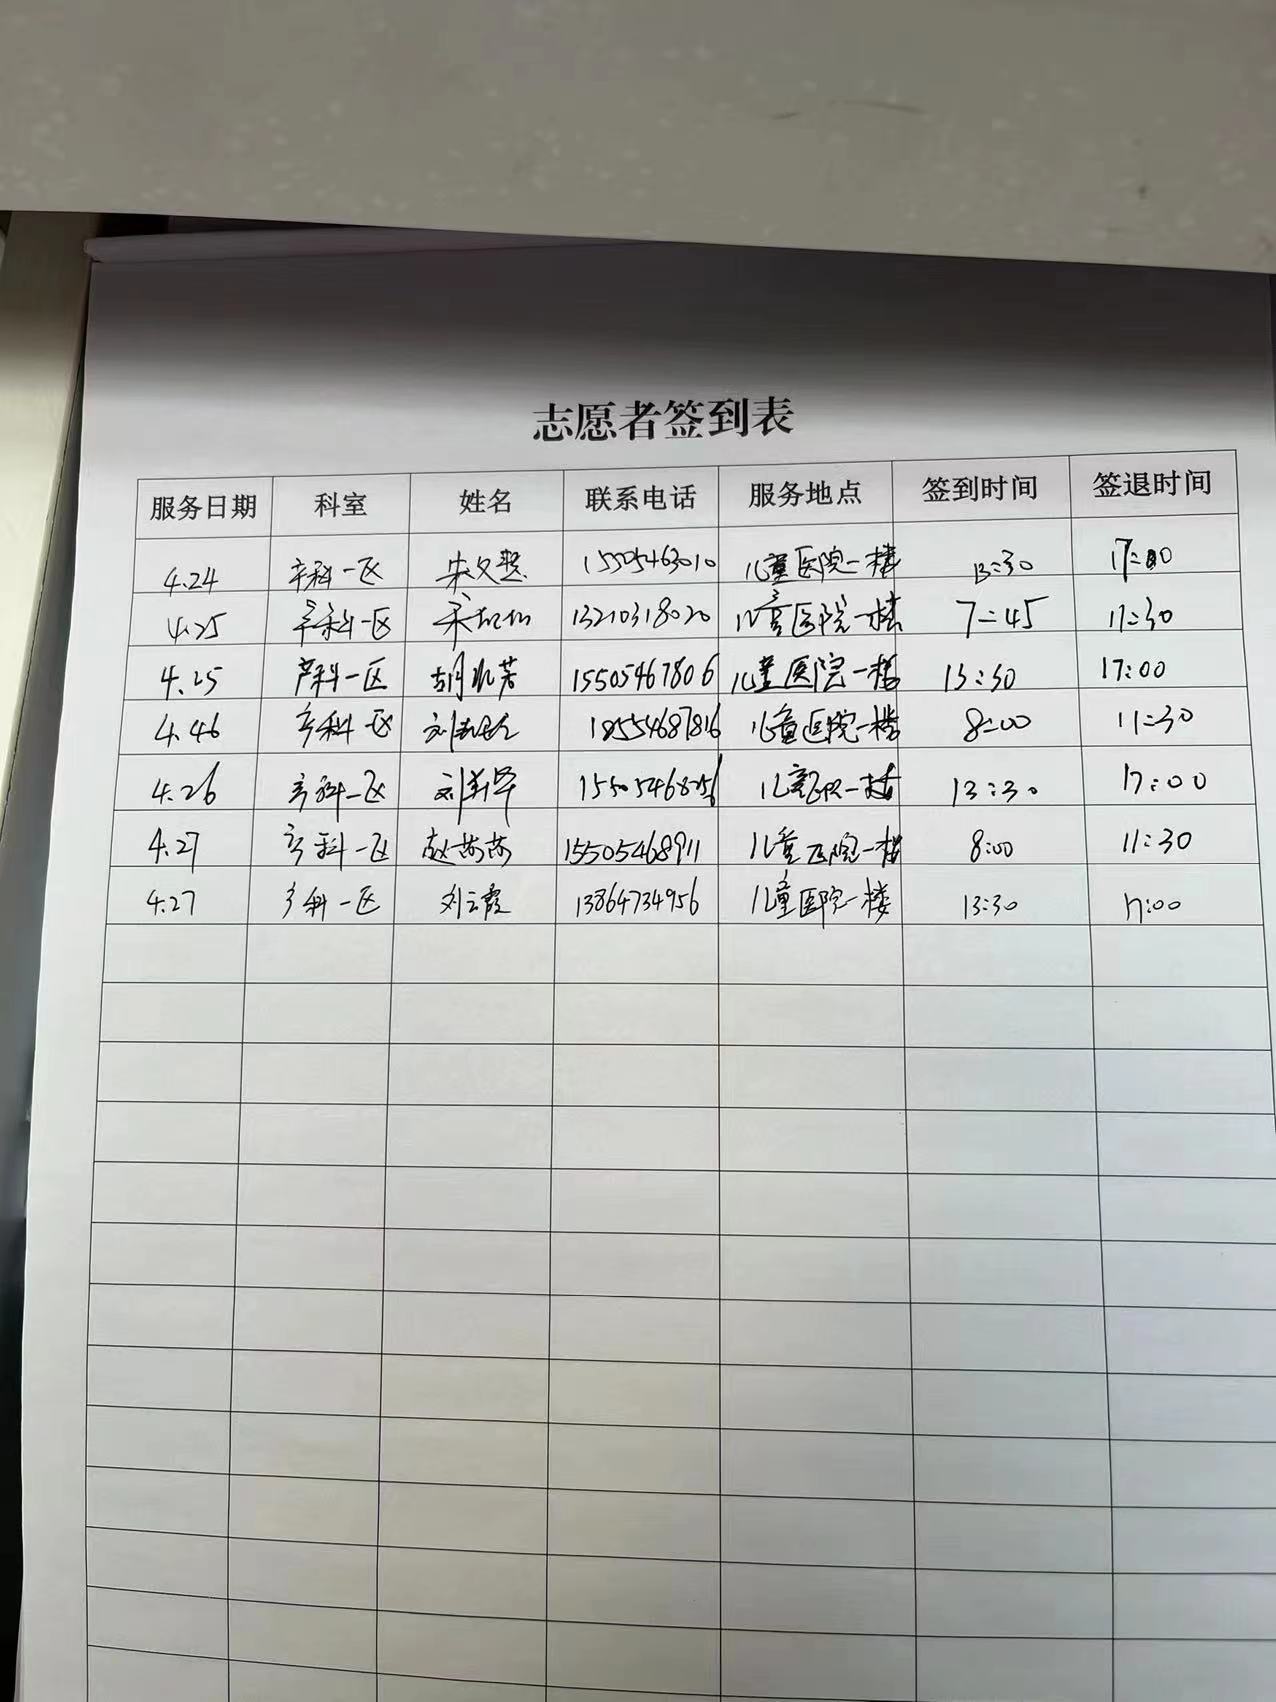 志愿者签到表
服务日期 科室 姓名 联系电话 服务地点 签到时间 签退时间
4.24 产科一区 宋文慧 15505463010 儿童医院一楼 13:30 17:00
4.25 产科一区 13210318020 儿童医院一楼 7:45 11:30
4.25 产科一区 胡秋芳 15505467806 儿童医院一楼 13:30 17:00
4.46 产科一区 18554687816 儿童医院一楼 8:00 11:30
4.26 产科一区 15505468256 儿童医院一楼 13:30 17:00
4.27 产科一区 赵芳芳 15505468911 儿童医院一楼 8:00 11:30
4.27 产科一区 刘云霞 13864734956 儿童医院一楼 13:30 17:00